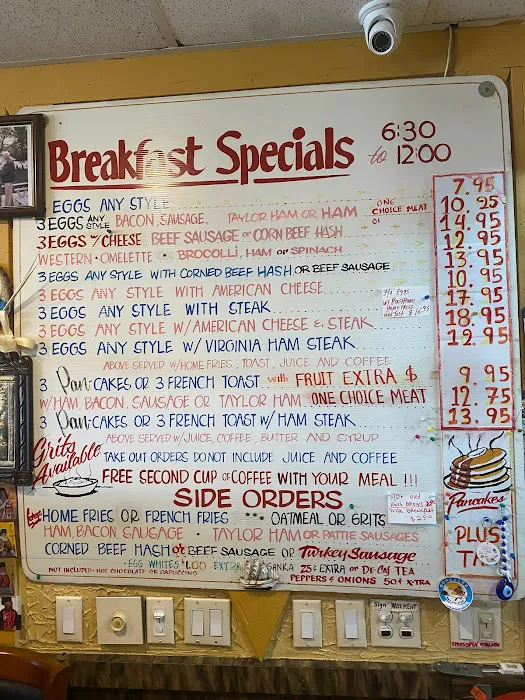 Breakfast Specials 6:30 to 12:00
EGGS ANY STYLE 7.95
3 EGGS ANY STYLE BACON, SAUSAGE, TAYLOR HAM OR HAM ONE CHOICE MEAT 10.25
3 EGGS W/ CHEESE BEEF SAUSAGE or CORN BEEF HASH 14.95
WESTERN · OMELETTE · BROCOLLI, HAM OR SPINACH 12.95
3 EGGS ANY STYLE WITH CORNED BEEF HASH OR BEEF SAUSAGE 13.95
3 EGGS ANY STYLE WITH AMERICAN CHEESE 10.95
3 EGGS ANY STYLE WITH STEAK 17.95
3 EGGS ANY STYLE W/AMERICAN CHEESE & STEAK 18.95
3 EGGS ANY STYLE W/ VIRGINIA HAM STEAK 12.95
ABOVE SERVED W/HOME FRIES, TOAST, JUICE AND COFFEE
3 Pan-CAKES OR 3 FRENCH TOAST with FRUIT EXTRA $ 9.95
W/HAM, BACON, SAUSAGE OR TAYLOR HAM ONE CHOICE MEAT 12.75
3 Pan-CAKES OR 3 FRENCH TOAST W/ HAM STEAK 13.95
ABOVE SERVED W/JUICE, COFFEE, BUTTER AND SYRUP
Grits Available
TAKE OUT ORDERS DO NOT INCLUDE JUICE AND COFFEE
FREE SECOND CUP OF COFFEE WITH YOUR MEAL !!!
Pancakes
SIDE ORDERS
HOME FRIES OR FRENCH FRIES OATMEAL OR GRITS
HAM, BACON SAUSAGE · TAYLOR HAM OR PATTIE SAUSAGES
CORNED BEEF HASH or BEEF SAUSAGE OR Turkey Sausage
PLUS
EGG WHITES $1.00 EXTRA SANKA 25¢ EXTRA or DECAF TEA
NOT INCLUDED: HOT CHOCOLATE OR CAPPUCINO PEPPERS & ONIONS 50¢ X-TRA